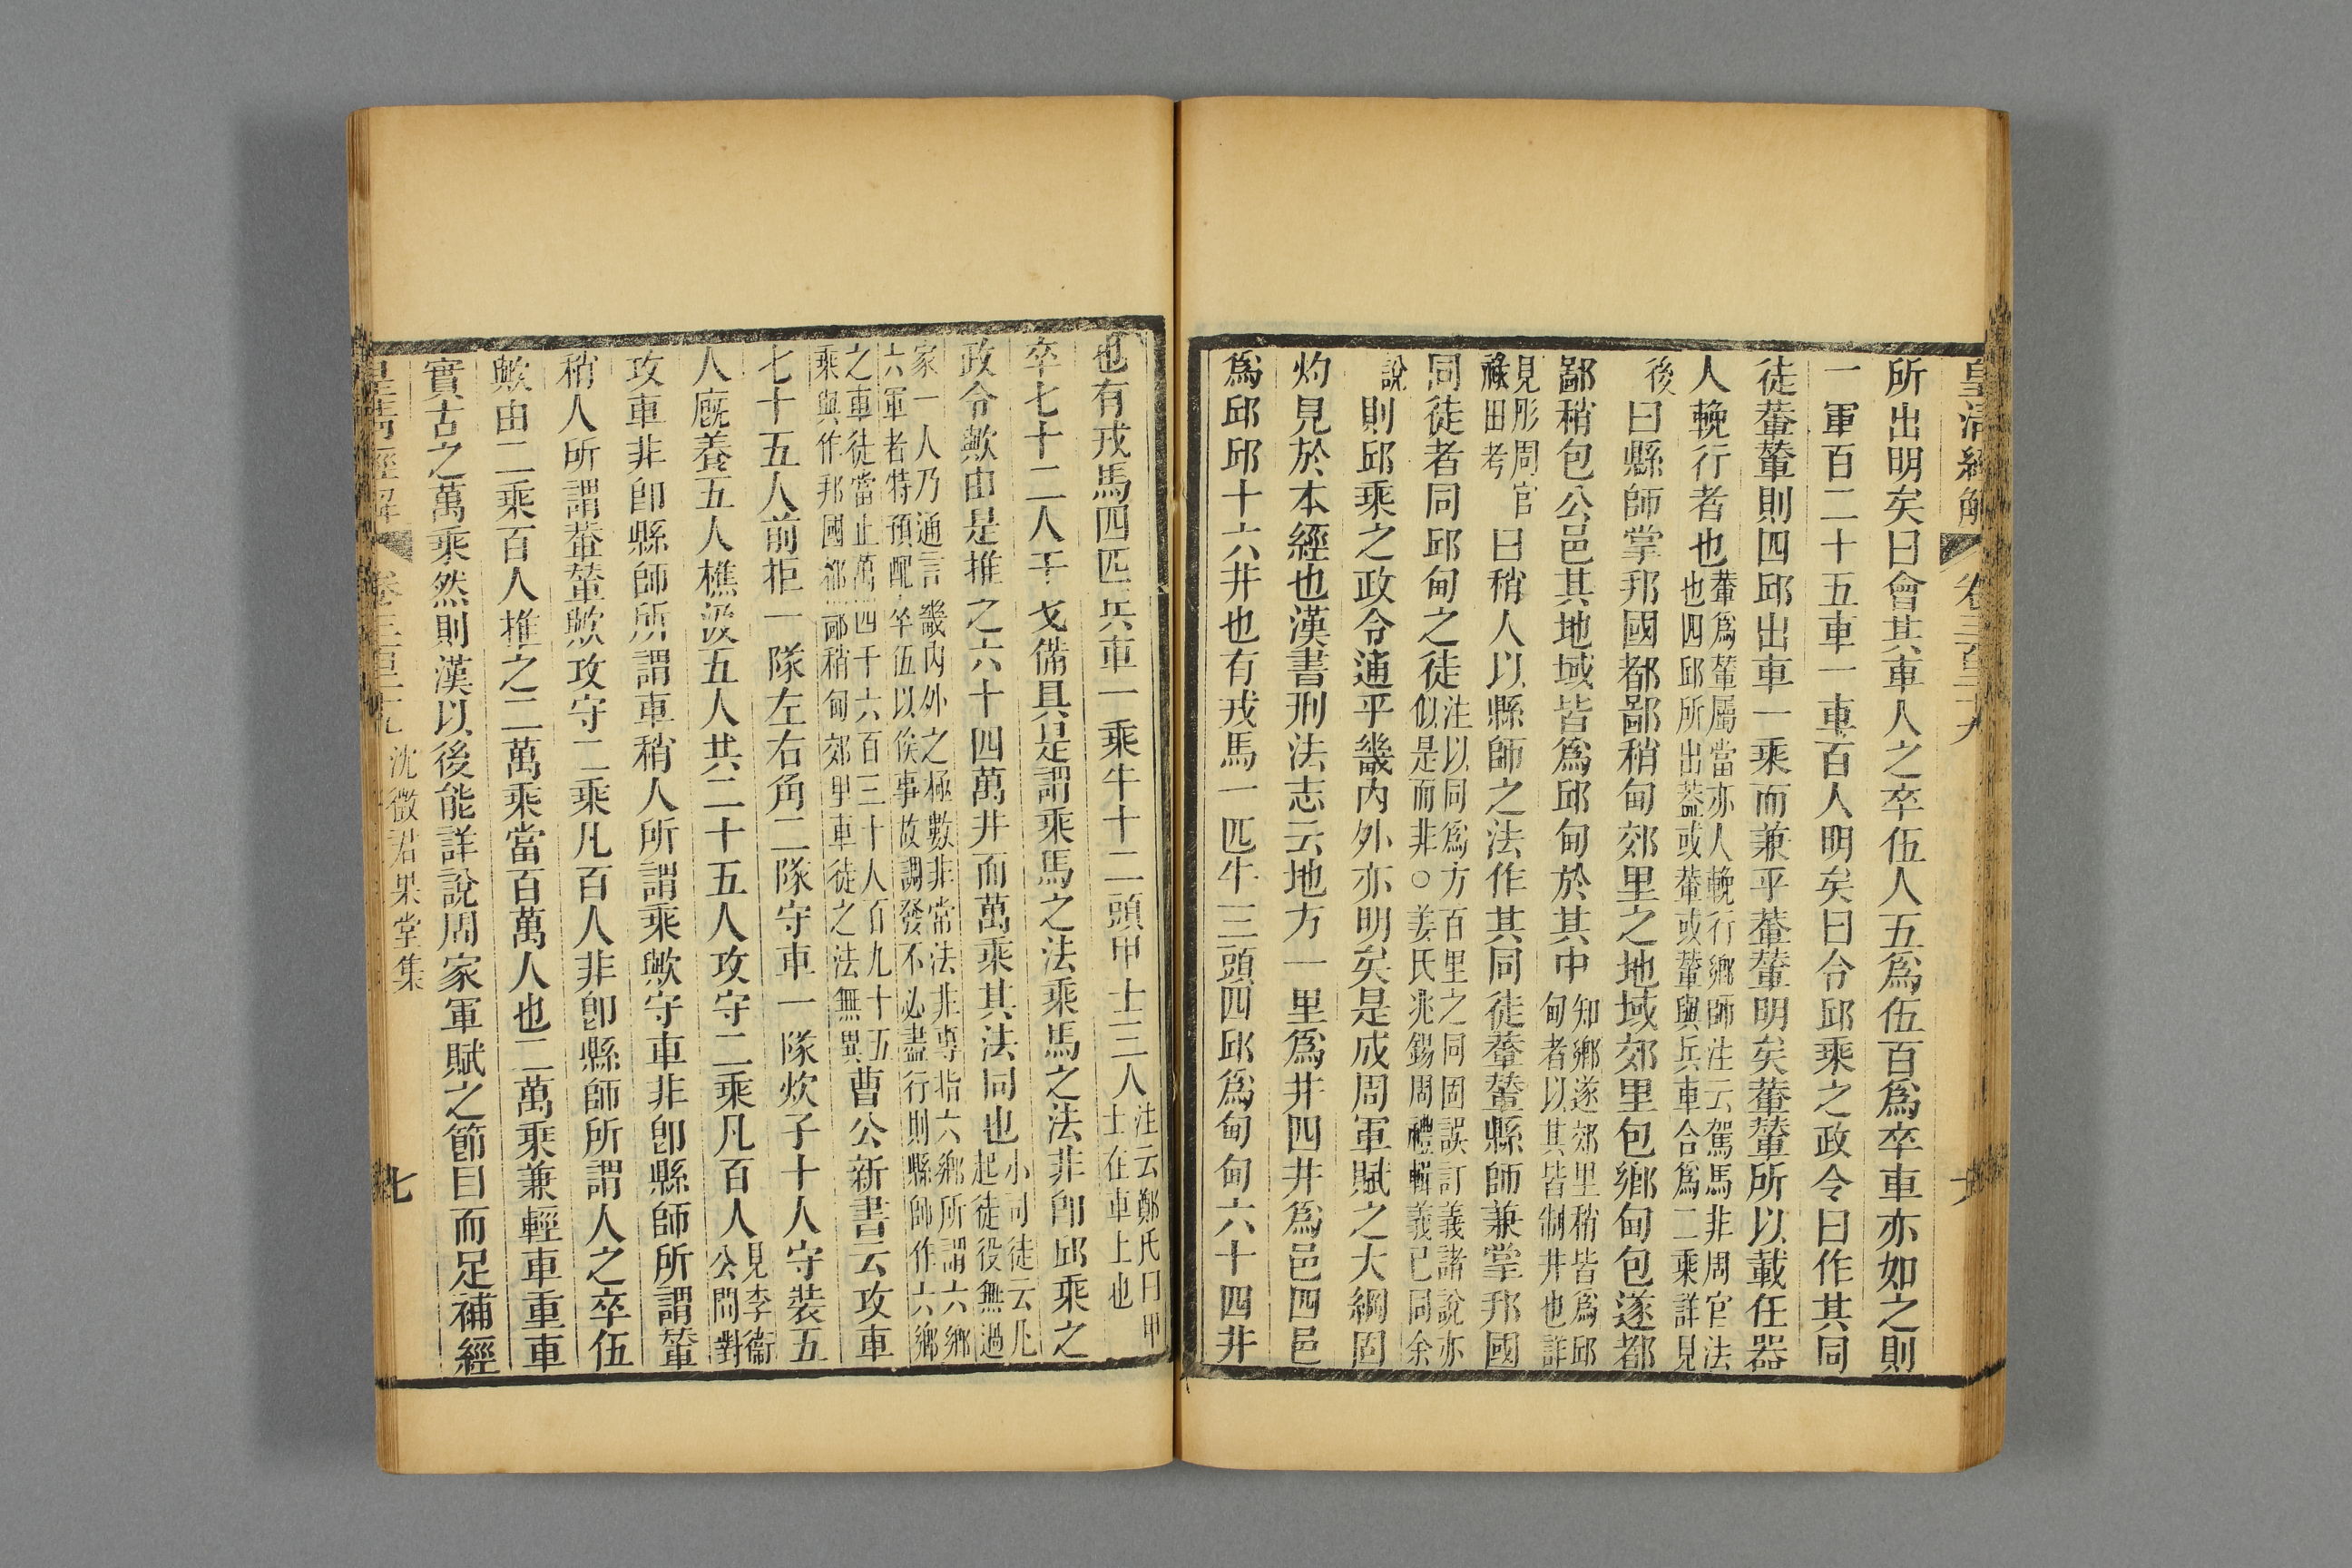 皇清經解 卷三百二十九
所出明矣曰會其車人之卒伍人五爲伍百爲卒車亦如之則
一軍百二十五車一車百人明矣曰令邱乘之政令曰作其同
徒輂輦則四邱出車一乘而兼乎輂輦明矣輂輦所以載任器
人輓行者也輂爲輦屬當亦人輓行鄉師注云駕馬非周官法
也四邱所出蓋或輂或輦與兵車合爲二乘詳見
後曰縣師掌邦國都鄙稍甸郊里之地域郊里包鄉甸包遂都
鄙稍包公邑其地域皆爲邱甸於其中知鄉遂郊里稍皆爲邱
甸者以其皆制井也詳
見彤周官
祿田考曰稍人以縣師之法作其同徒輂輦縣師兼掌邦國
同徒者同邱甸之徒注以同爲方百里之同固誤訂義諸說亦
似是而非○姜氏兆錫周禮輯義已同余
說則邱乘之政令通乎畿內外亦明矣是成周軍賦之大綱固
灼見於本經也漢書刑法志云地方一里爲井四井爲邑四邑
爲邱邱十六井也有戎馬一匹牛三頭四邱爲甸甸六十四井
也有戎馬四匹兵車一乘牛十二頭甲士三人注云鄭氏曰甲
士在車上也
卒七十二人干戈備具是謂乘馬之法乘馬之法非卽邱乘之
政令歟由是推之六十四萬井而萬乘其法同也小司徒云凡
起徒役無過
家一人乃通言畿內外之極數非常法非專指六鄉所謂六鄉
六軍者特預配卒伍以俟事故調發不必盡行則縣師作六鄉
之車徒當止萬四千六百三十人百九十五
乘與作邦國都鄙稍甸郊里車徒之法無異曹公新書云攻車
七十五人前拒一隊左右角二隊守車一隊炊子十人守裝五
人廐養五人樵汲五人共二十五人攻守二乘凡百人見李衞
公問對
攻車非卽縣師所謂車稍人所謂乘歟守車非卽縣師所謂輦
稍人所謂輂輦歟攻守二乘凡百人非卽縣師所謂人之卒伍
歟由二乘百人推之二萬乘當百萬人也二萬乘兼輕車重車
實古之萬乘然則漢以後能詳說周家軍賦之節目而足補經
皇清經解 沈徵君果堂集 七